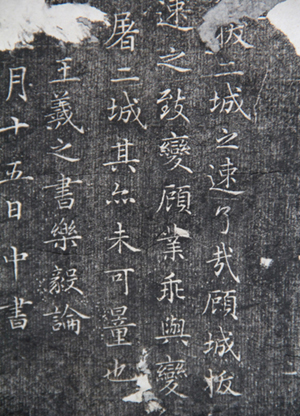 拔二城之速了哉顧城拔
速之致變顧業乖與變
屠二城其亦未可量也
王羲之書樂毅論
月十五日中書